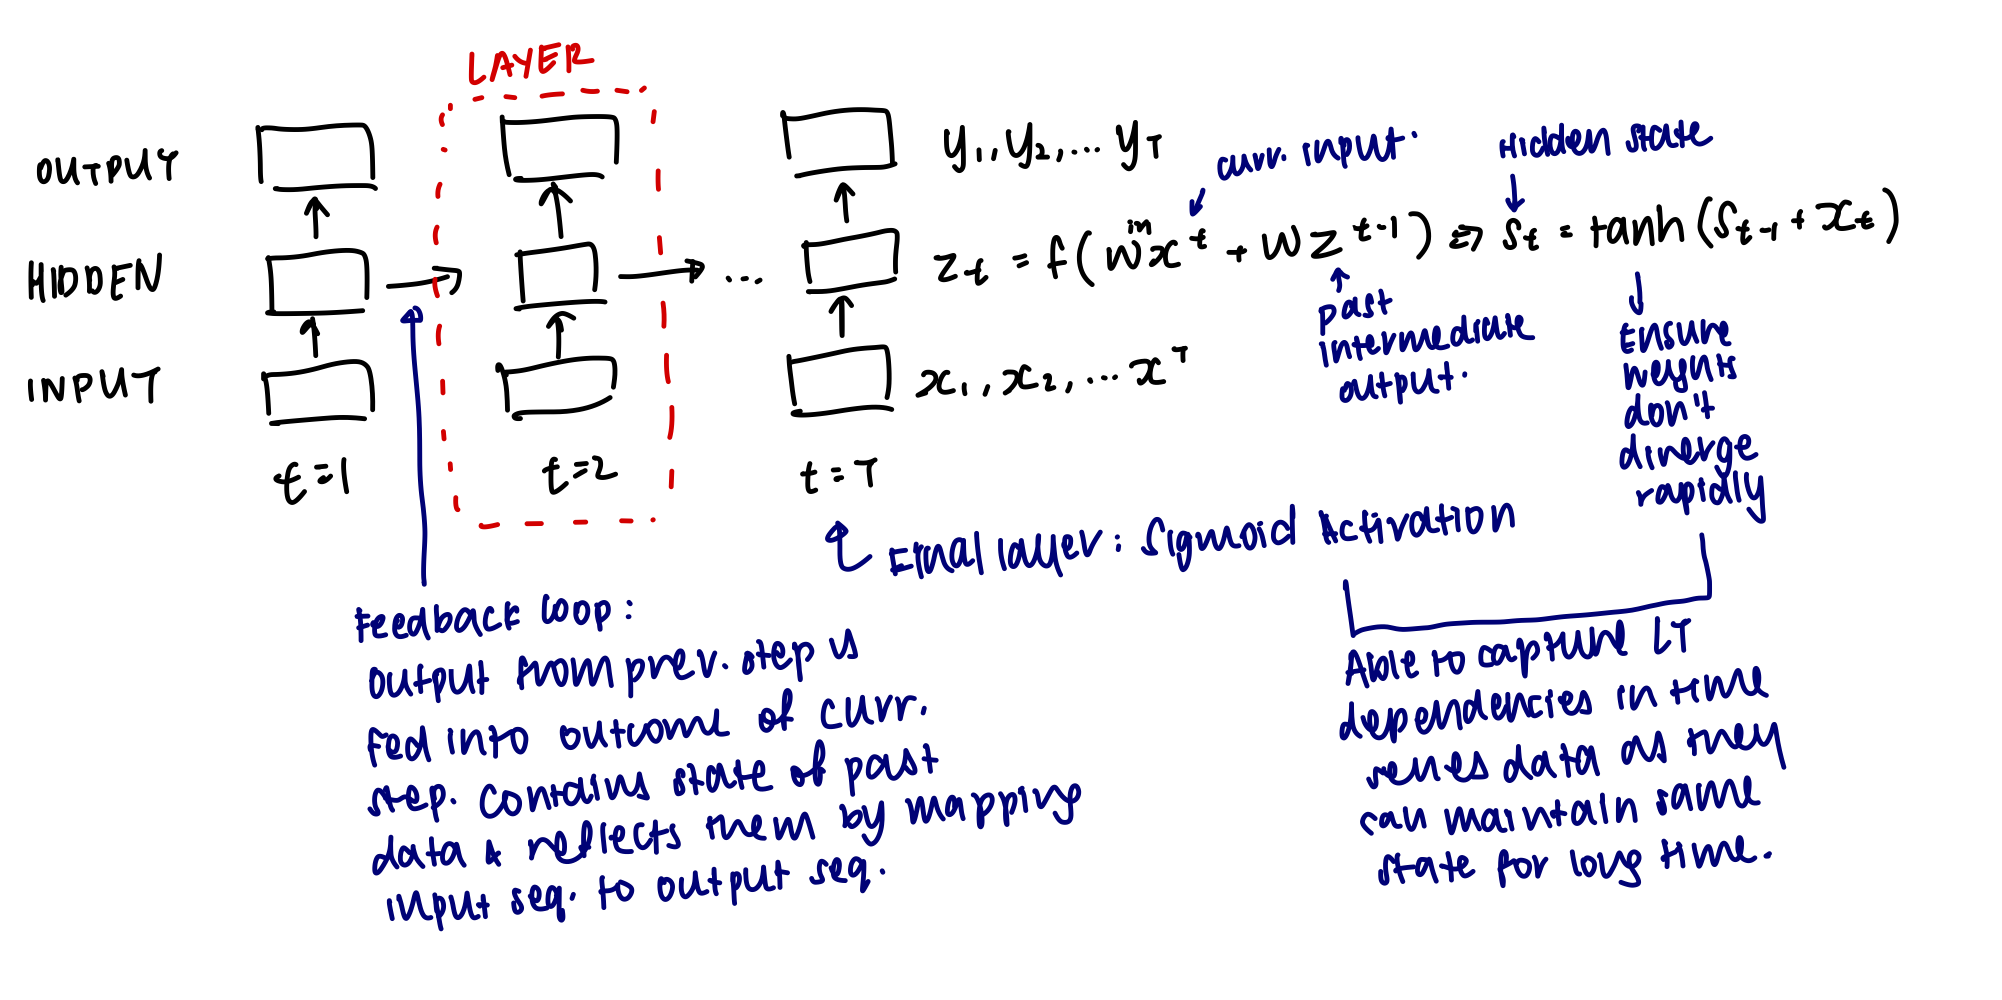 LAYER
OUTPUT
y₁, y₂, ... y_T
curr. input.
Hidden state
HIDDEN
...
z_t = f(W^in x^t + W z^t-1) ⇔ S_t = tanh(S_t-1 + x_t)
past
intermediate
output.
Ensure
weights
don't
diverge
rapidly
INPUT
x₁, x₂, ... x^T
t=1
t=2
t=T
Final layer: Sigmoid Activation
Feedback loop:
output from prev. step is
fed into outcome of curr.
step. contains state of past
data & reflects them by mapping
input seq. to output seq.
Able to capture LT
dependencies in time
series data as they
can maintain same
state for long time.